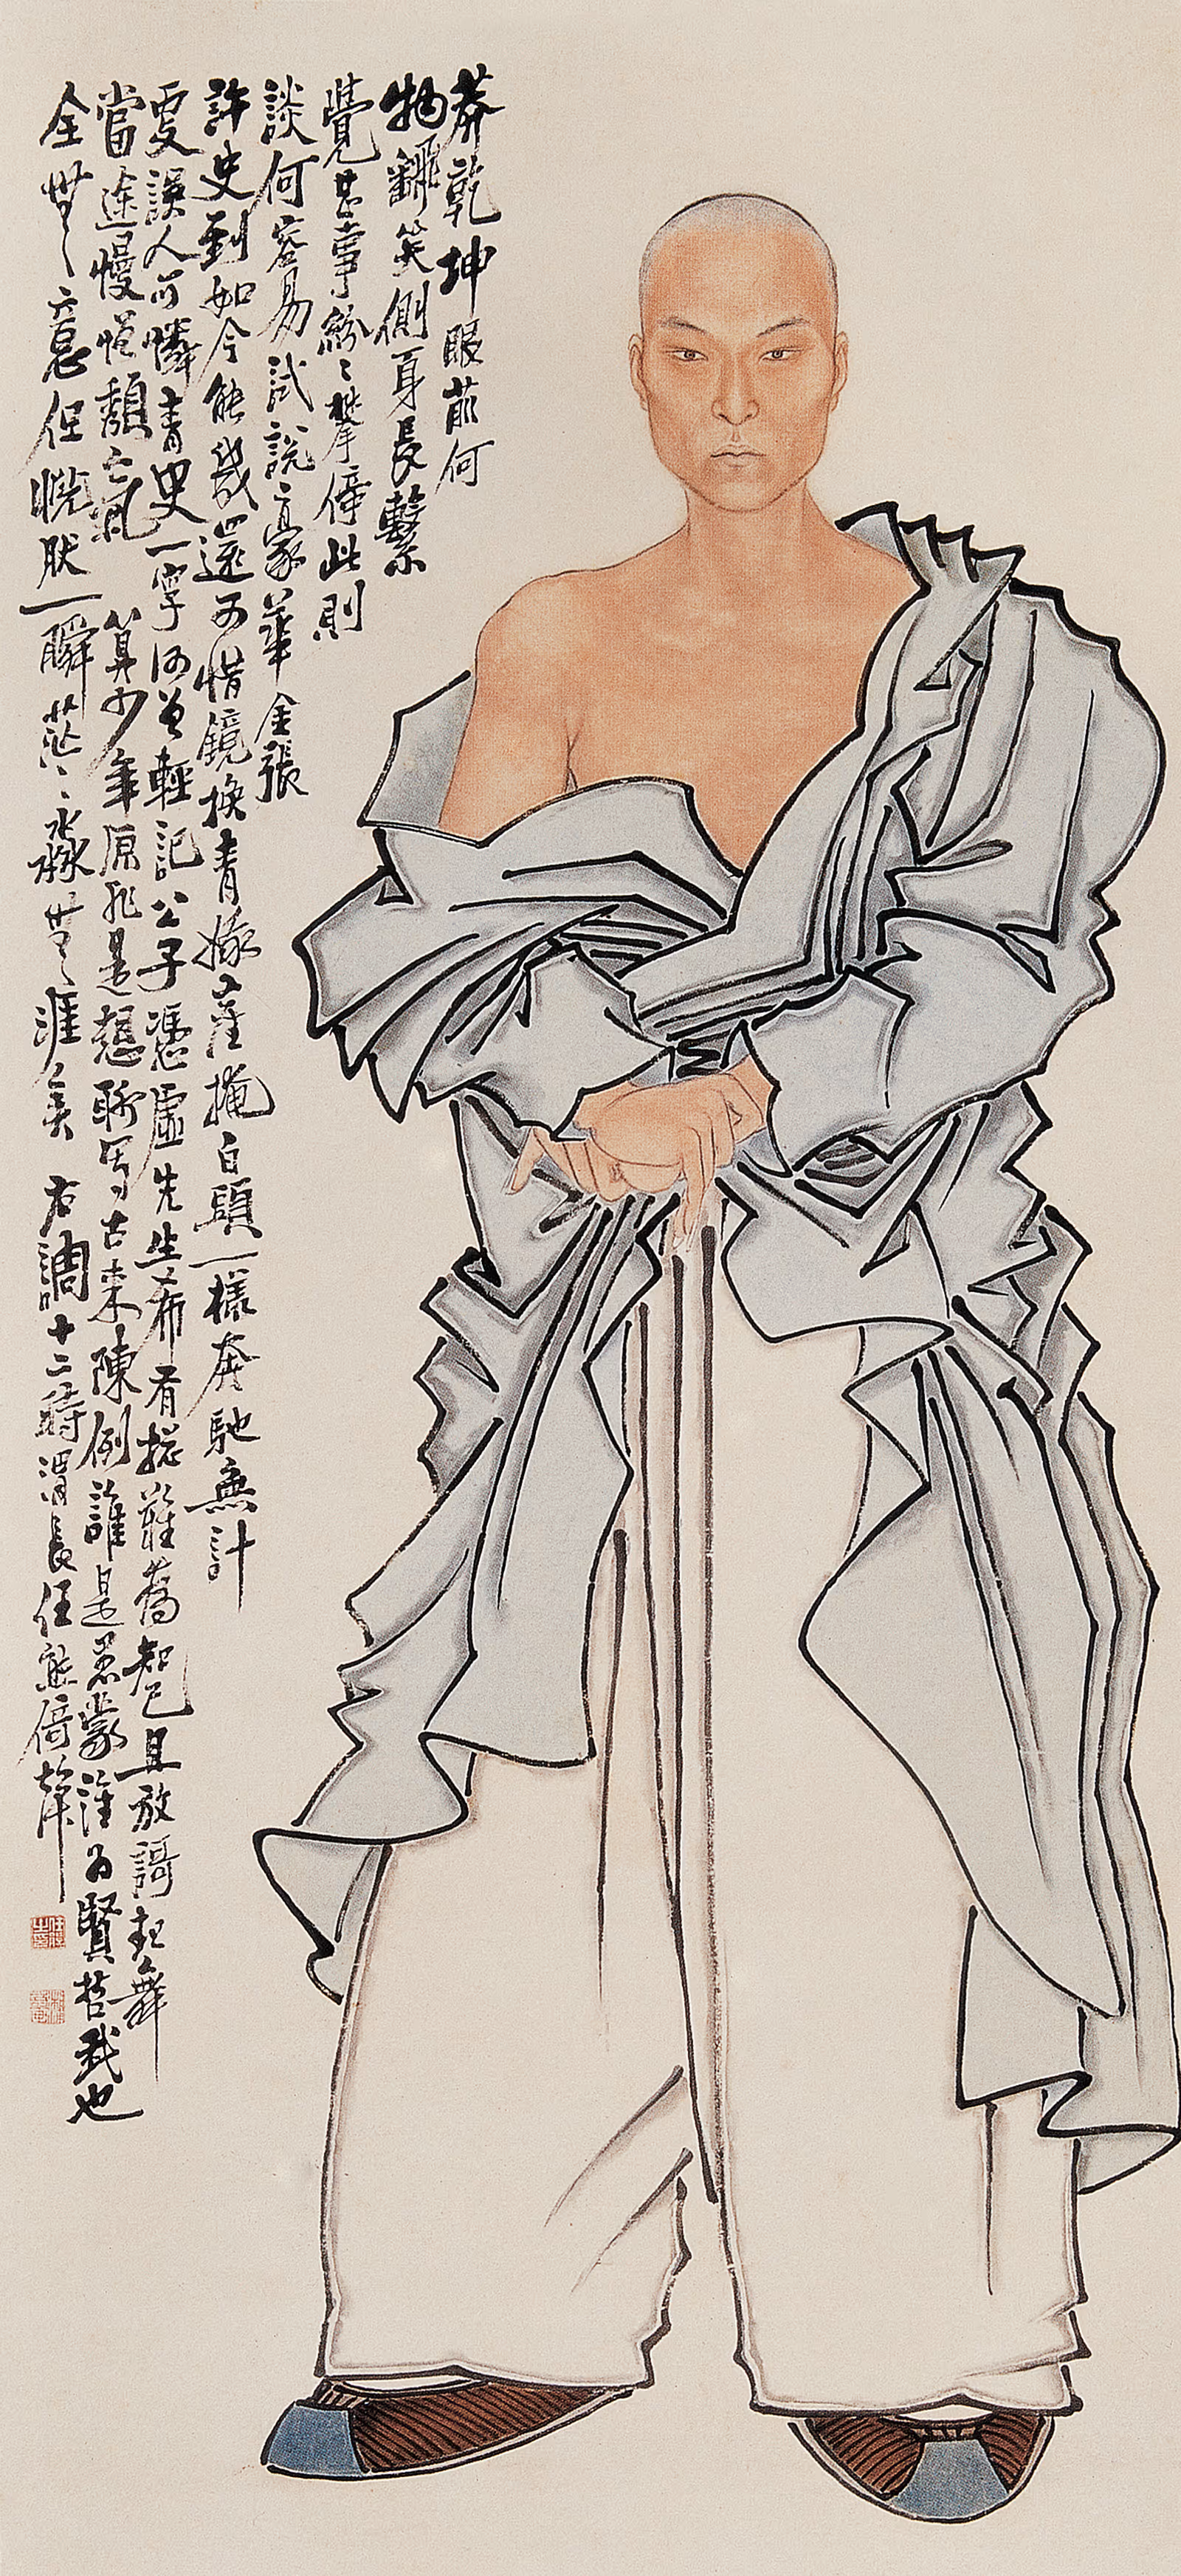 莽乾坤眼前何
物翻笑側身長繫
覺甚事紛〻攀倚此則
談何容易試說豪華金張
許史到如今能幾還可惜鏡換青娥塵掩白頭一樣奔馳無計
更誤人可憐青史一字何曾輕記公子憑虛先生希有總難為知己且放謌起舞
當途慢憎頹亡氣 算少年原非是想聊寫古來陳例誰是愚蒙誰為賢哲我也
全無〻意但恍肰一瞬茫〻淼無〻涯矣 右調十二時渭長任熊倚聲